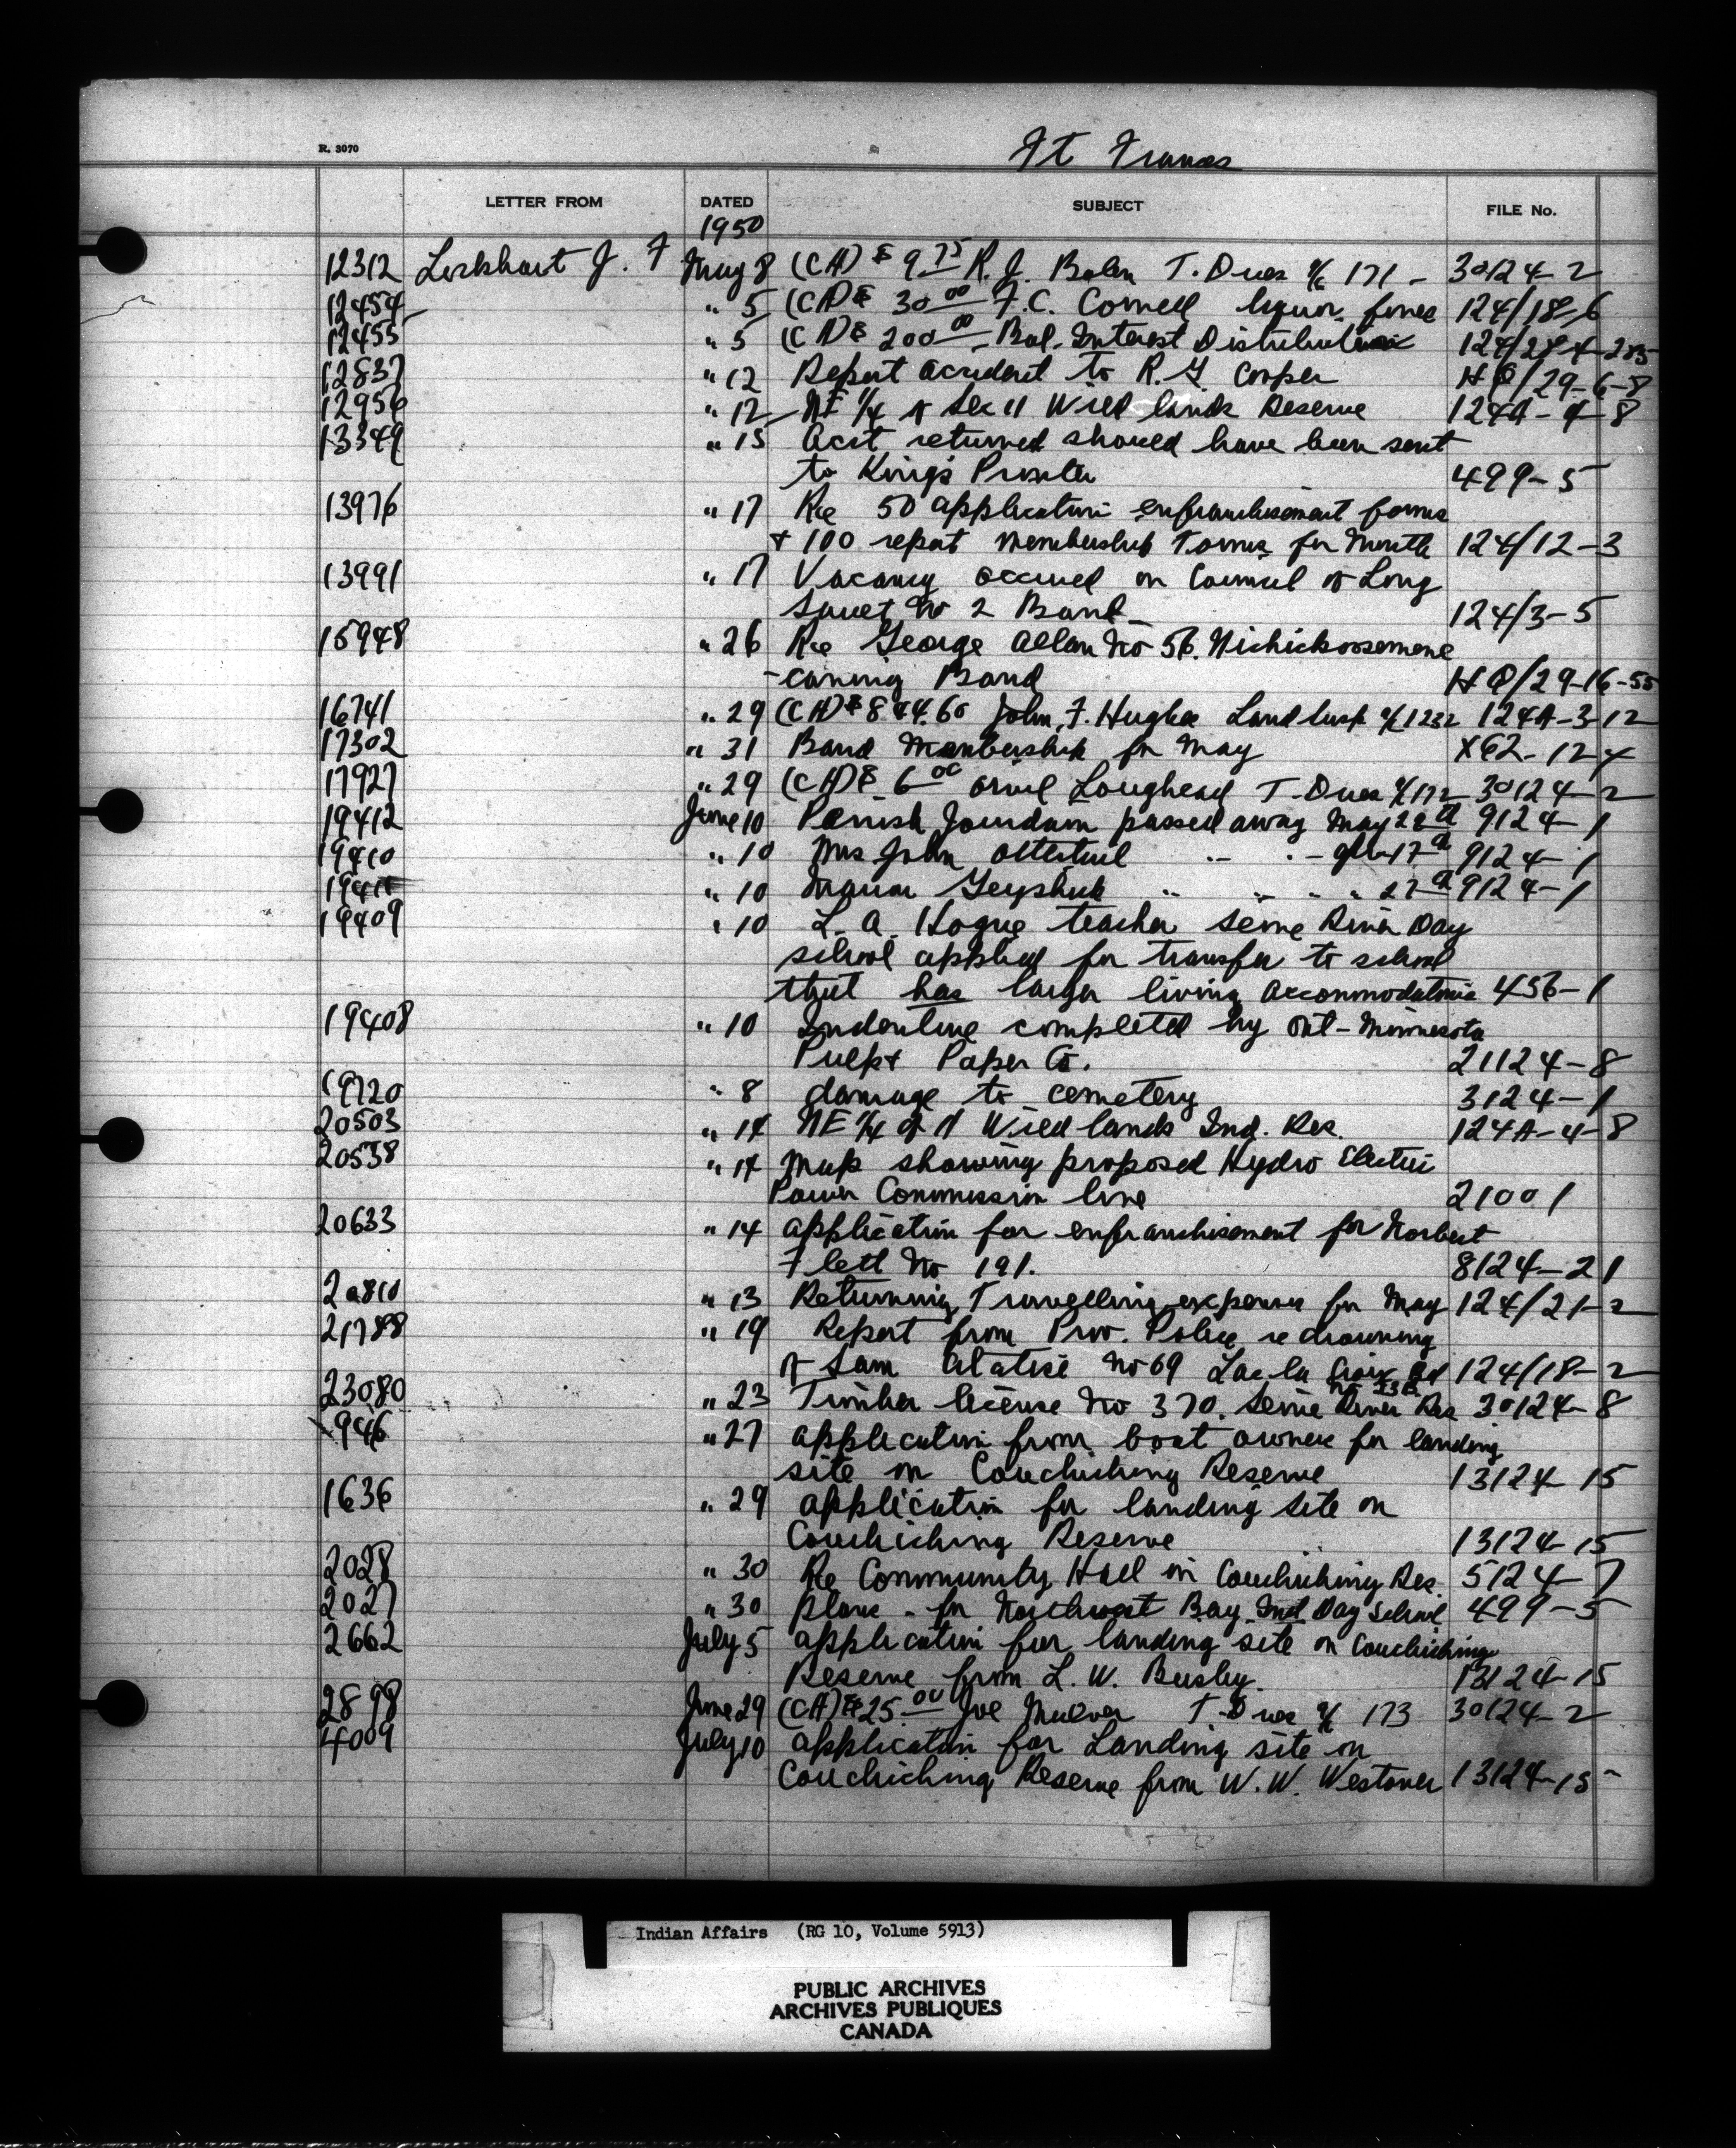 R. 3070
Ft Frances
LETTER FROM DATED SUBJECT FILE No.
1950
12312 Lockhart J. F May 8 (CH) $ 9.75 R. J. T. Dues % 171 - 30124-2
12454 " 5 (CH) $ 30 00 F.C. Cornell liquor fines 124/18-6
12455 " 5 (CH) $ 200 00 Bal. Interest Distribution 124/28-4-285
12837 " 12 Report accident to R. G. Cooper HQ/29-6-8
12956 " 12 NE 1/4 of Sec 11 Wild lands Reserve 124A-4-8
13349 " 15 Acct returned should have been sent
to King's Printer 499-5
13976 " 17 Re 50 application enfranchisement forms
+ 100 report membership forms for Month 124/12-3
13991 " 17 Vacancy occured on Council of Long
Sault No 2 Band 124/3-5
15948 " 26 Re George Allan No 56. Nickickoosemene
-caning Band HQ/29-16-55
16741 " 29 (CH) $ 844.60 John F. Hughes Land % 1232 124A-3-12
17302 " 31 Band Membership for May X62-12-4
17927 " 29 (CH) $ 6 00 Orvel Loughead T-Dues % 172 30124-2
19412 June 10 Jourdain passed away May 9124-1
19410 " 10 Mrs John Ottertail " " - 17th 9124-1
" 10 " " " " 27th 9124-1
19409 " 10 L. A. Hogue teacher Seine River Day
school applied for transfer to school
that has larger living accommodations 456-1
19408 " 10 Indenture completed by Ont-Minnesota
Pulp & Paper Co. 21124-8
19720 " 8 damage to cemetery 3124-1
20503 " 14 NE 1/4 of 11 Wild lands Ind. Res. 124A-4-8
20538 " 14 Map showing proposed Hydro Electric
Power Commission line 21001
20633 " 14 application for enfranchisement for Norbert
Flett No 191. 8124-21
20810 " 13 Returning Travelling expenses for May 124/21-2
21788 " 19 Report from Prov. Police re drowning
of Sam Atatise No 69 Lac la Croix Bd 124/18-2
No 23B
23080 " 23 Timber license No 370. Seine River Res 30124-8
946 " 27 application from boat owners for landing
site on Couchiching Reserve 13124-15
1636 " 29 application for landing site on
Couchiching Reserve 13124-15
2028 " 30 Re Community Hall on Couchiching Res. 5124-7
2027 " 30 plans - for Northwest Bay Ind Day School 499-5
2662 July 5 application for landing site on Couchiching
Reserve from L. W. 13124-15
2898 June 29 (CH) $ 25 00 Joe T-Dues % 173 30124-2
4009 July 10 application for Landing site on
Couchiching Reserve from W. W. Westover 13124-15
Indian Affairs (RG 10, Volume 5913)
PUBLIC ARCHIVES
ARCHIVES PUBLIQUES
CANADA